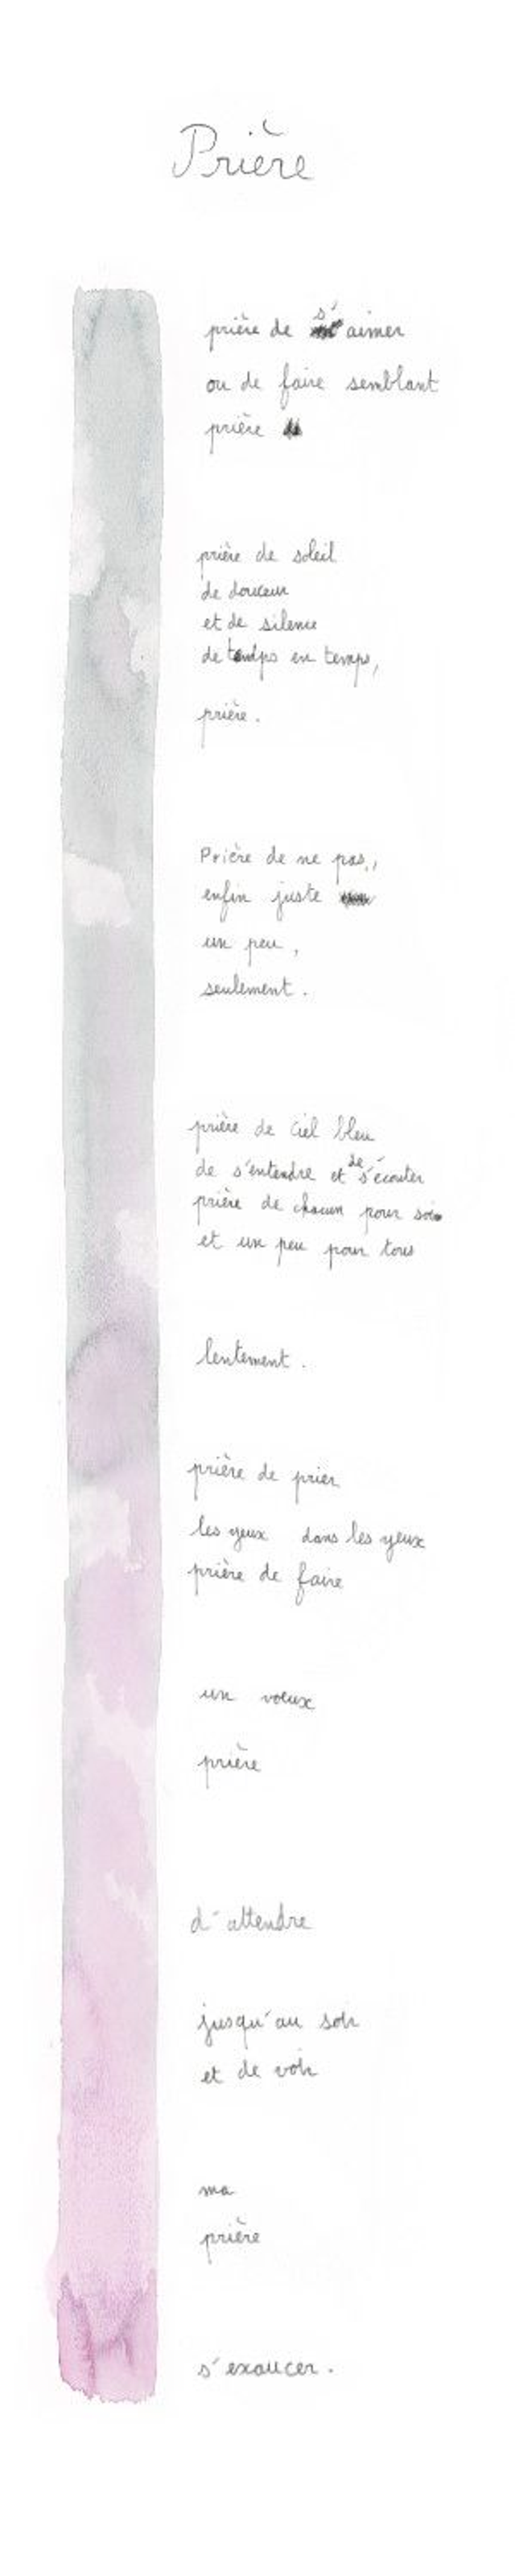 Prière
prière de s'aimer
ou de faire semblant
prière
prière de soleil
de douceur
et de silence
de temps en temps,
prière.
Prière de ne pas,,
enfin juste
un peu,
seulement.
prière de ciel bleu
de s'entendre et de s'écouter
prière de chacun pour soi
et un peu pour tous
lentement.
prière de prier
les yeux dans les yeux
prière de faire
un voeux
prière
d'attendre
jusqu'au soir
et de voir
ma
prière
s'exaucer.